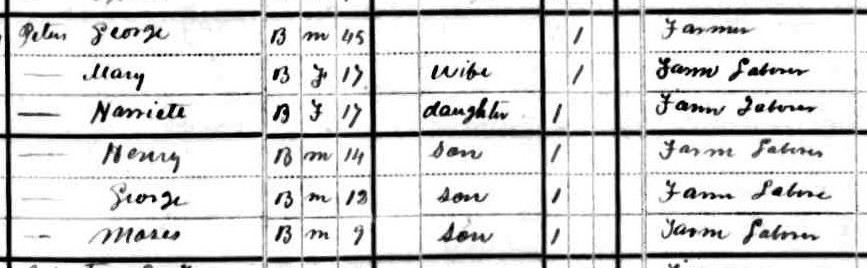 Peters George B m 45 1 Farmer
— Mary B F 17 wife 1 Farm Laborer
— Harriete B F 17 daughter 1 Farm Laborer
— Henry B m 14 son 1 Farm Laborer
— George B m 12 son 1 Farm Labore
— Moses B m 9 son 1 Farm Laborer